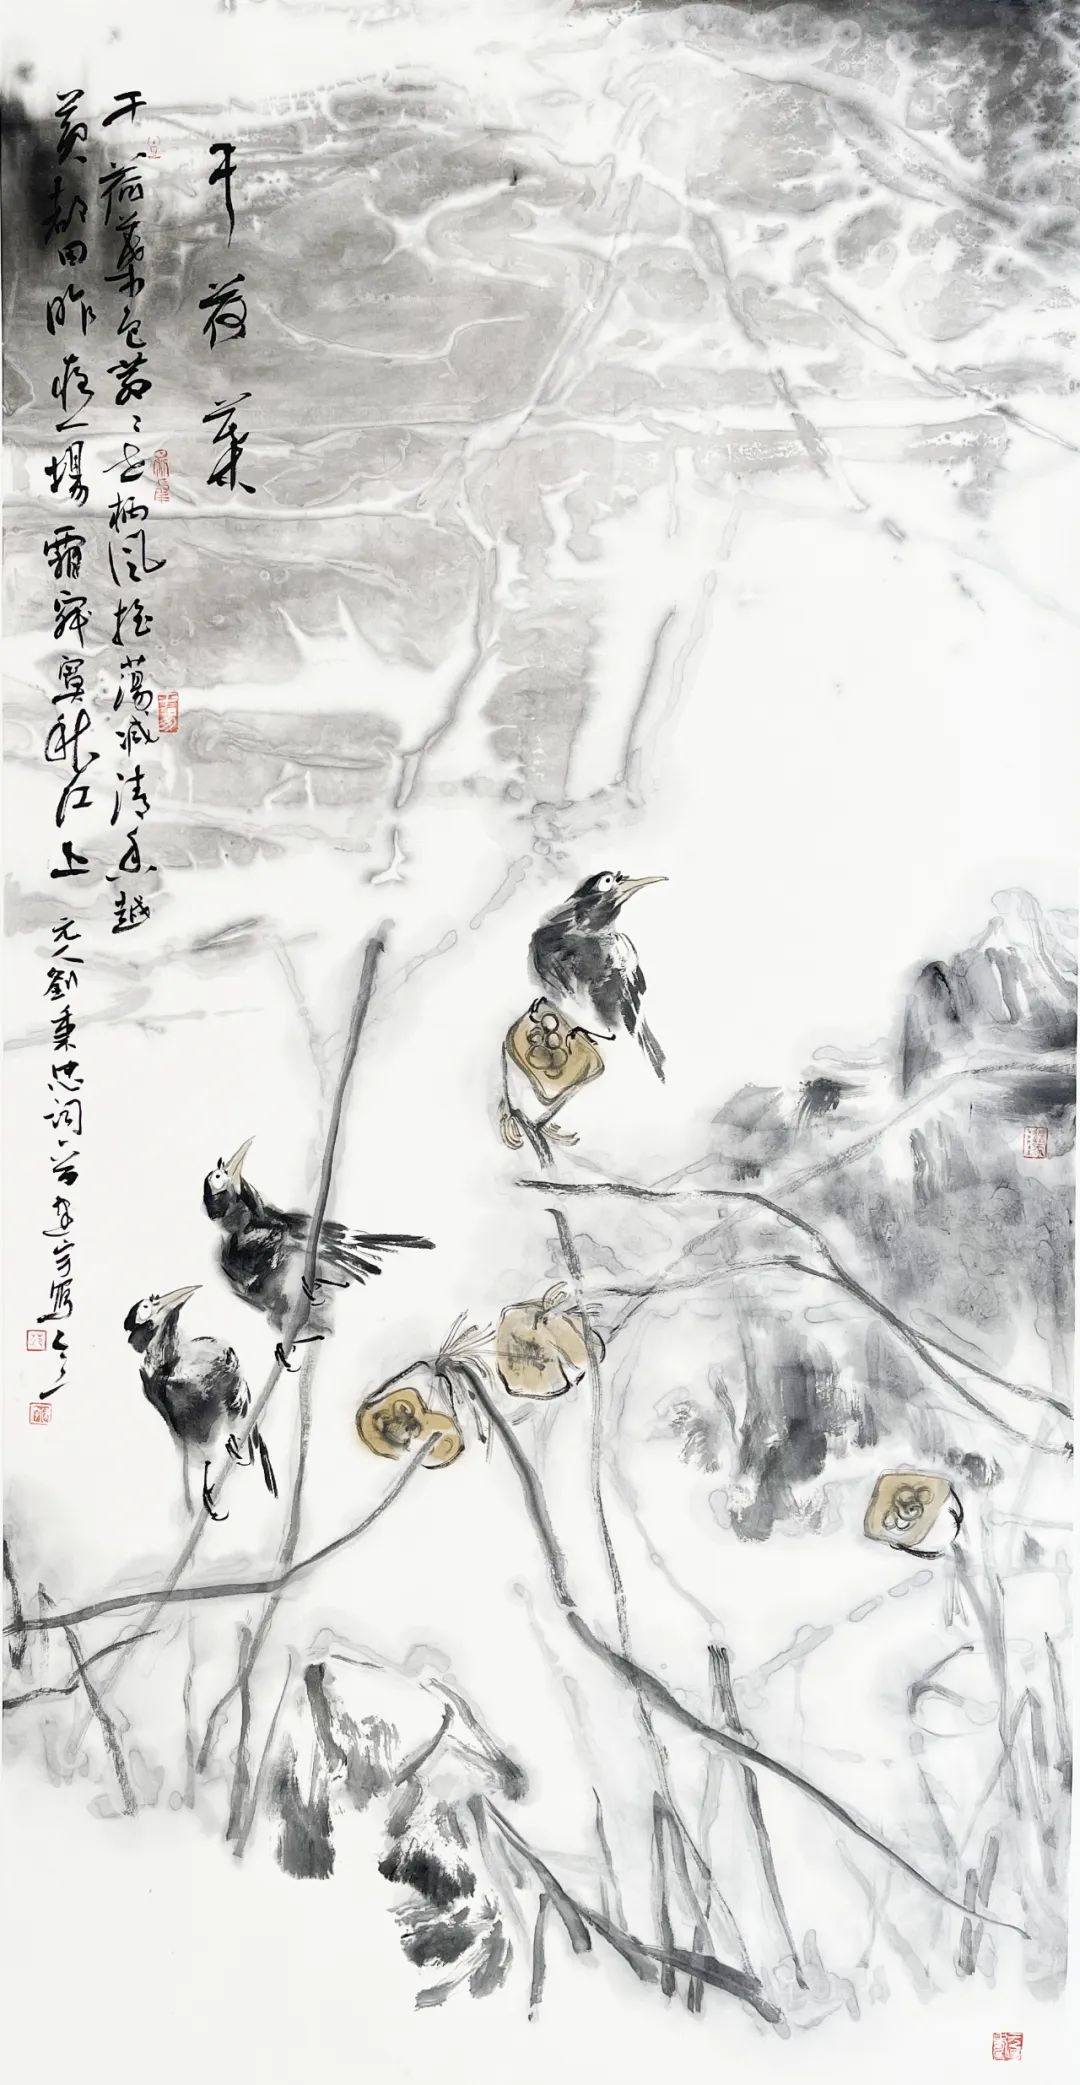 干荷葉
干荷葉色蒼〻老柄風搖蕩減清香越
黃都因昨夜一場霜寂寞秋江上 元人劉秉忠詞 寫